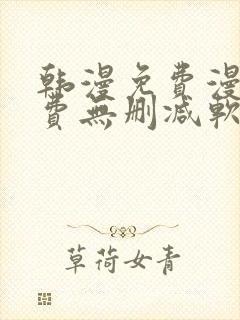 韩漫免費漫
費無删减軟
草荷女青